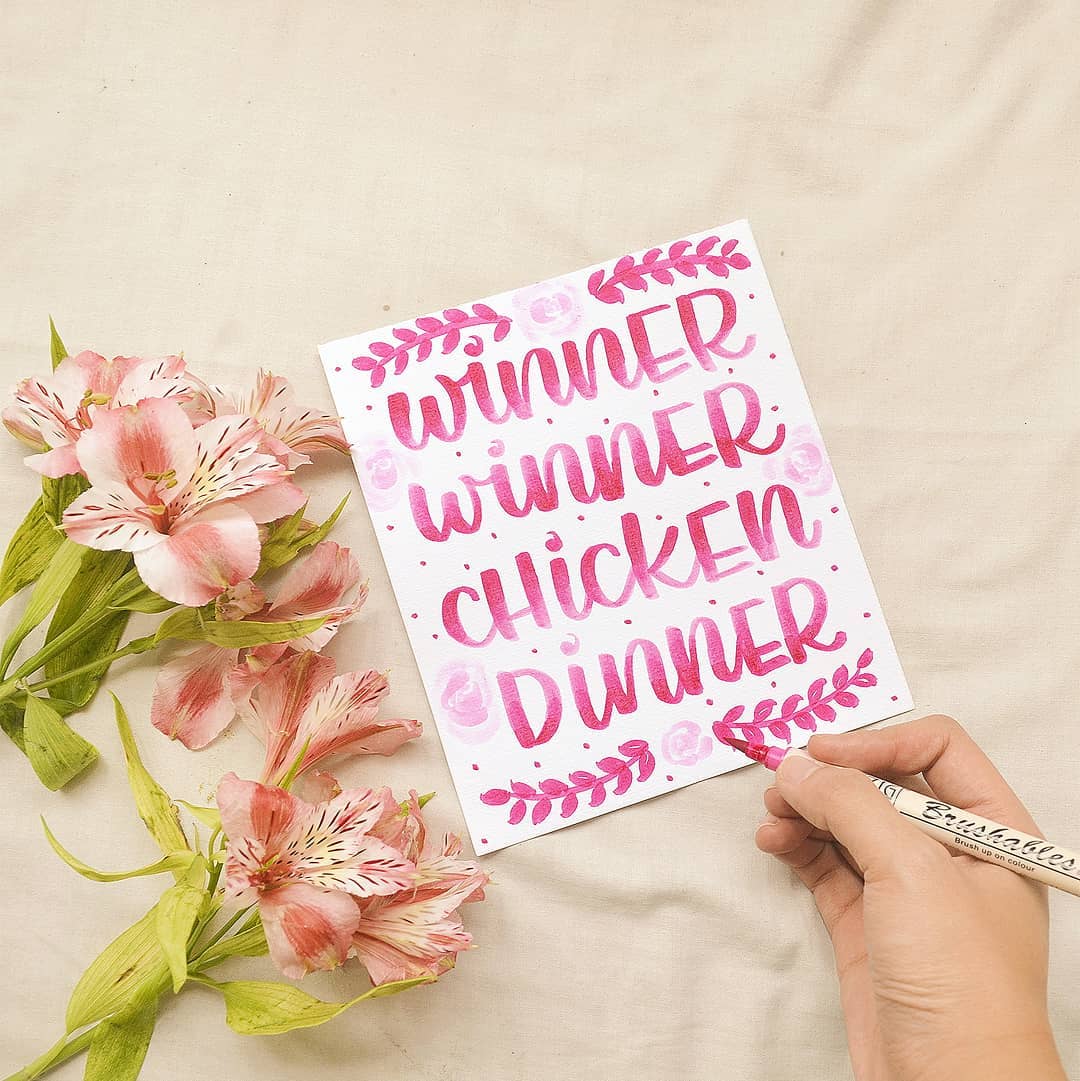 winnER
winnER
cHickEn
DinnER
IG
Brushables
Brush up on colour